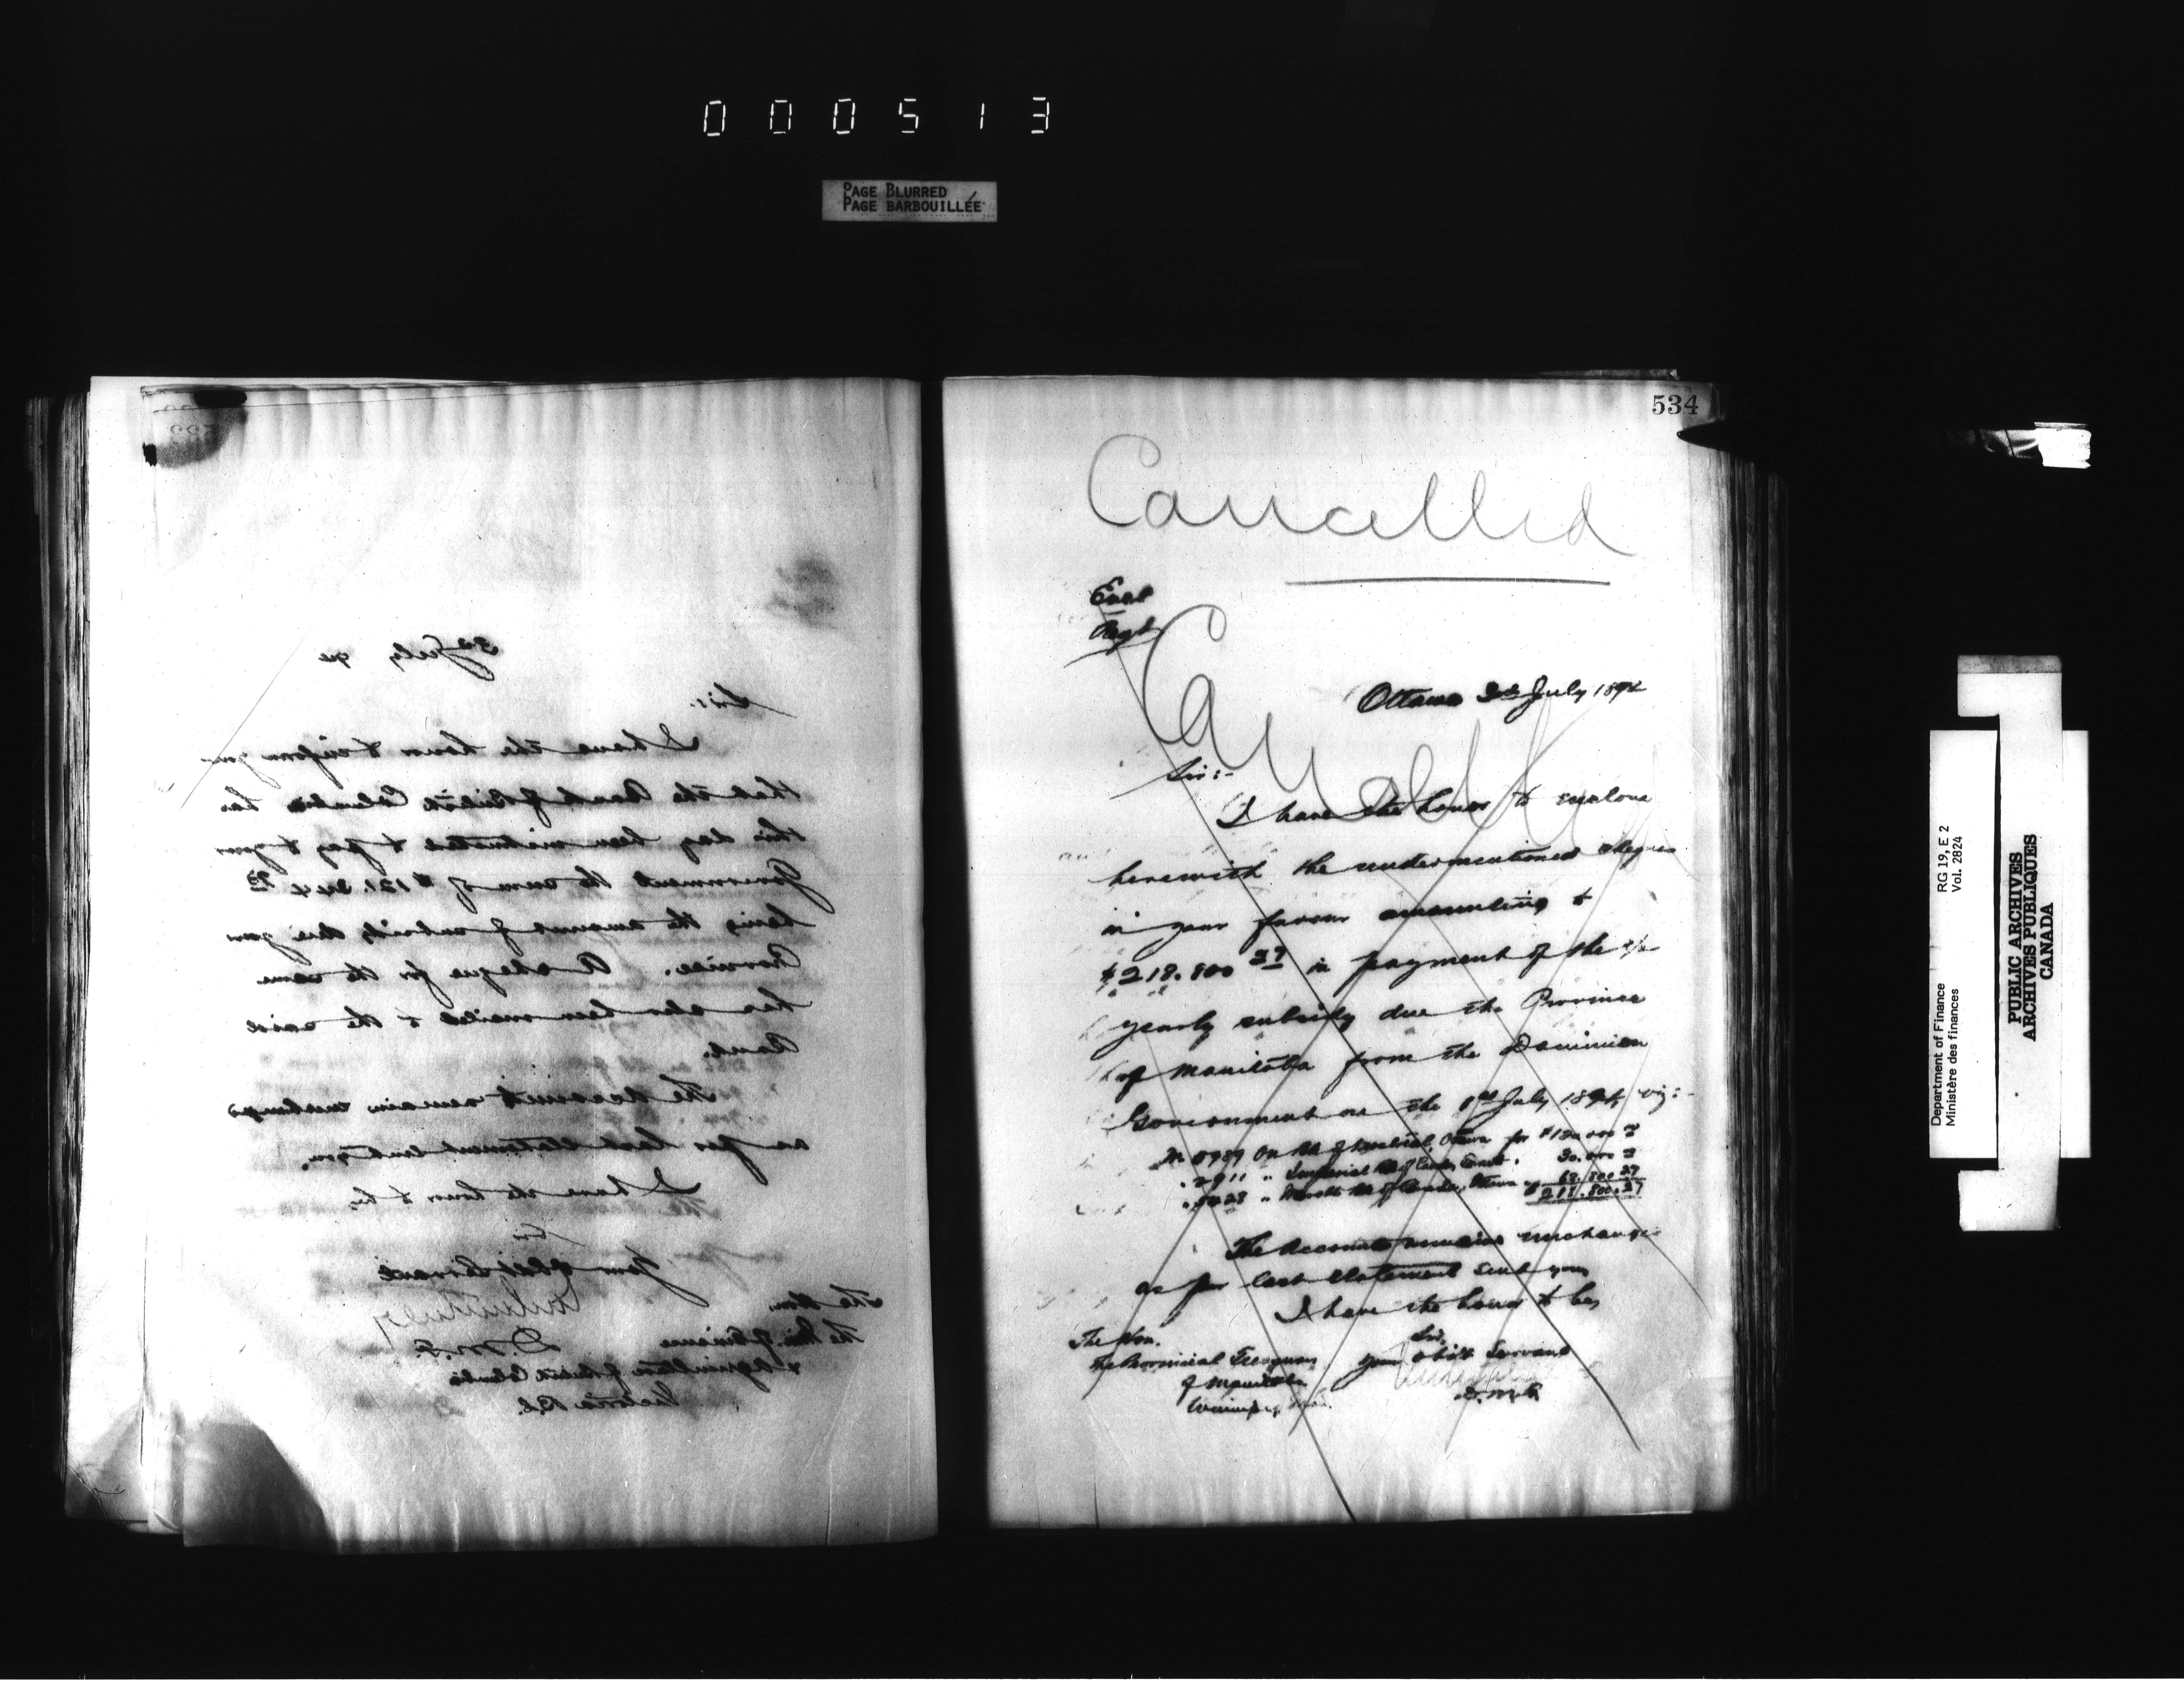 000513
PAGE BLURRED
PAGE BARBOUILLÉE
3rd July
Sir:
I have the honor to inform you
that the Bank of British Columbia has
this day been instructed to pay to your
Government the sum of
being the amount of subsidy due your
Province. A cheque for the same
has also been mailed to the said
Bank.
The Account remains unchanged
as per last statement sent you.
I have the honor to be
Sir
Your Obdt Servant
D.M.F.
The Hon.
The Min. of Finance
& Agriculture of British Columbia
Victoria B.C.
534
Cancelled
Encl
Regd
Cancelled
Ottawa 3rd July 1894
Sir:-
I have the honor to enclose
herewith the undermentioned cheques
in your favour amounting to
$218.800 27 in payment of the 1/2
yearly subsidy due the Province
of Manitoba from the Dominion
Government on the 1st July 1894, viz:-
On Bk of Montreal, Ottawa for
2911 " Imperial Bk of Can. 30.000
" Bk of Canada, Ottawa 68.800.27
$218.800.27
The Account remains unchanged
as per last statement sent you
I have the honor to be,
Sir,
Your obdt Servant
D.M.F.
The Hon.
The Provincial Treasurer
of Manitoba
Winnipeg Man.
Department of Finance RG 19, E 2
Ministère des finances Vol. 2824
PUBLIC ARCHIVES
ARCHIVES PUBLIQUES
CANADA